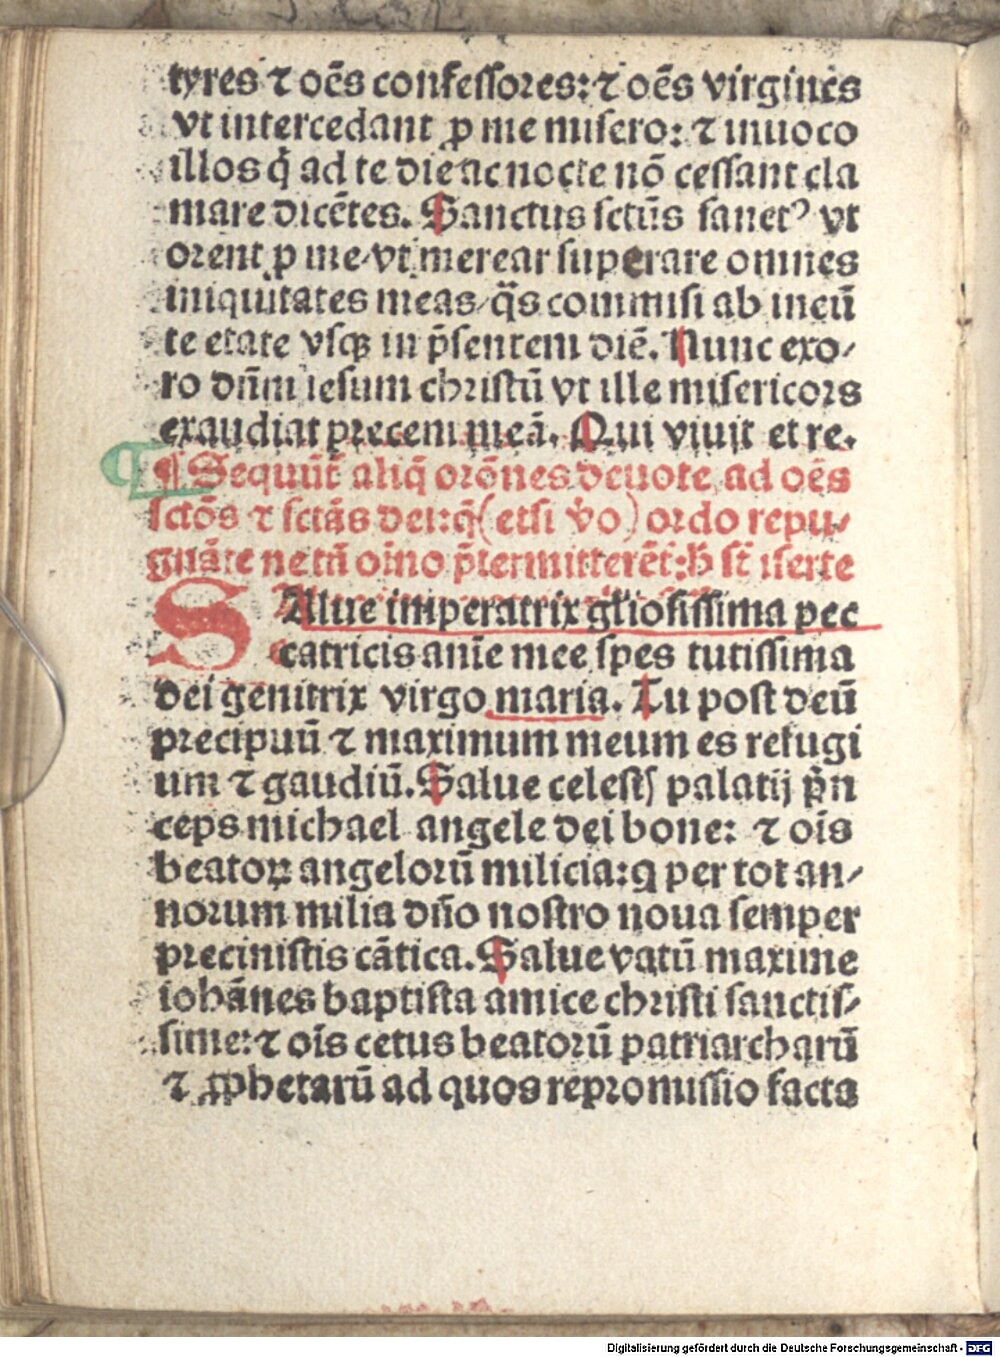 tyres ⁊ oēs confessores: ⁊ oēs virgines
vt intercedant ꝓ me misero: ⁊ inuoco
illos q̄ ad te die ac nocte nō cessant cla
mare dicētes. Sanctus sctūs sanctꝰ vt
orent ꝓ me/vt merear superare omnes
iniquitates meas/q̄s commisi ab ineū
te etate vsqꝫ in p̄sentem diē. Nunc exo/
ro dn̄m iesum christū vt ille misericors
exaudiat precem meā. Qui viuit et re.
¶ Sequūt̄ aliq̄ orōnes deuote ad oēs
sctōs ⁊ sctās dei: q̄ (etsi v̄o) ordo repu/
gnāte ne tn̄ oīno p̄termitterēt̄: h̄ st̄ iserte
SAlue imperatrix gl̄iosissima pec
catricis anīe mee spes tutissima
dei genitrix virgo maria. Tu post deū
precipuū ⁊ maximum meum es refugi
um ⁊ gaudiū. Salue celestꝭ palatij p̄n
ceps michael angele dei bone: ⁊ oīs
beatoꝝ angelorū milicia: q per tot an/
norum milia dn̄o nostro noua semper
precinistis cātica. Salue vatū maxime
iohānes baptista amice christi sanctis/
sime: ⁊ oīs cetus beatorū patriarcharū
⁊ ꝓphetarū ad quos repromissio facta
Digitalisierung gefördert durch die Deutsche Forschungsgemeinschaft - DFG